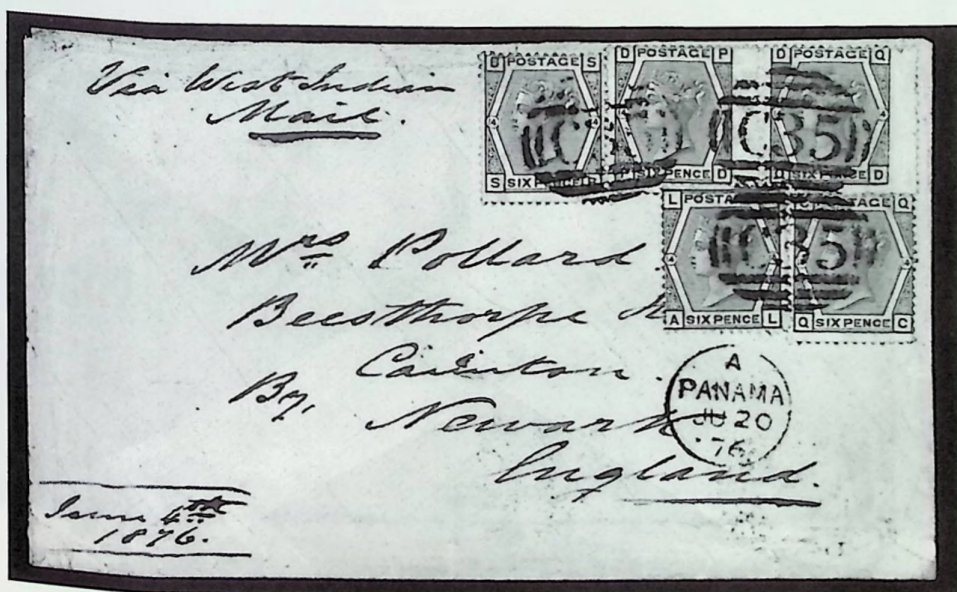 Via West Indian
Mail.
D POSTAGE S
SIX PENCE
S
D POSTAGE P
SIX PENCE D
D POSTAGE Q
SIX PENCE D
C35
L POSTA
A SIX PENCE L
POSTAGE Q
Q SIX PENCE C
C35
Mrs Pollard
Beesthorpe H
Caunton.
By, Newark
England.
A
PANAMA
JU 20
76
June 4th
1876.